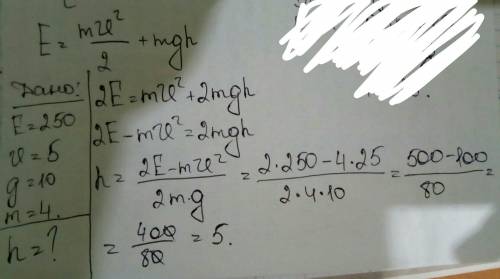 E = mv²/2 + mgh
Дано:
E = 250
v = 5
g = 10
m = 4.
h = ?
2E = mv² + 2mgh
2E - mv² = 2mgh
h = (2E - mv²)/(2m·g) = (2·250 - 4·25)/(2·4·10) = (500 - 100)/80 =
= 400/80 = 5.